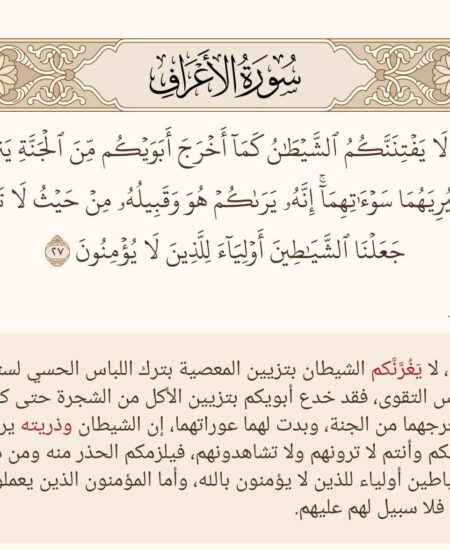 سُورَةُ الأَعْرَافِ
لَا يَفْتِنَنَّكُمُ ٱلشَّيْطَـٰنُ كَمَآ أَخْرَجَ أَبَوَيْكُم مِّنَ ٱلْجَنَّةِ
لِيُرِيَهُمَا سَوْءَٰتِهِمَآ ۗ إِنَّهُۥ يَرَىٰكُمْ هُوَ وَقَبِيلُهُۥ مِنْ حَيْثُ لَا
جَعَلْنَا ٱلشَّيَـٰطِينَ أَوْلِيَآءَ لِلَّذِينَ لَا يُؤْمِنُونَ ٢٧
، لا يَغُرَّنَّكم الشيطان بتزيين المعصية بترك اللباس الحسي
التقوى، فقد خدع أبويكم بتزيين الأكل من الشجرة حتى
من الجنة، وبدت لهما عوراتهما، إن الشيطان وذريته
وأنتم لا ترونهم ولا تشاهدونهم، فيلزمكم الحذر منه ومن
أولياء للذين لا يؤمنون بالله، وأما المؤمنون الذين
فلا سبيل لهم عليهم.